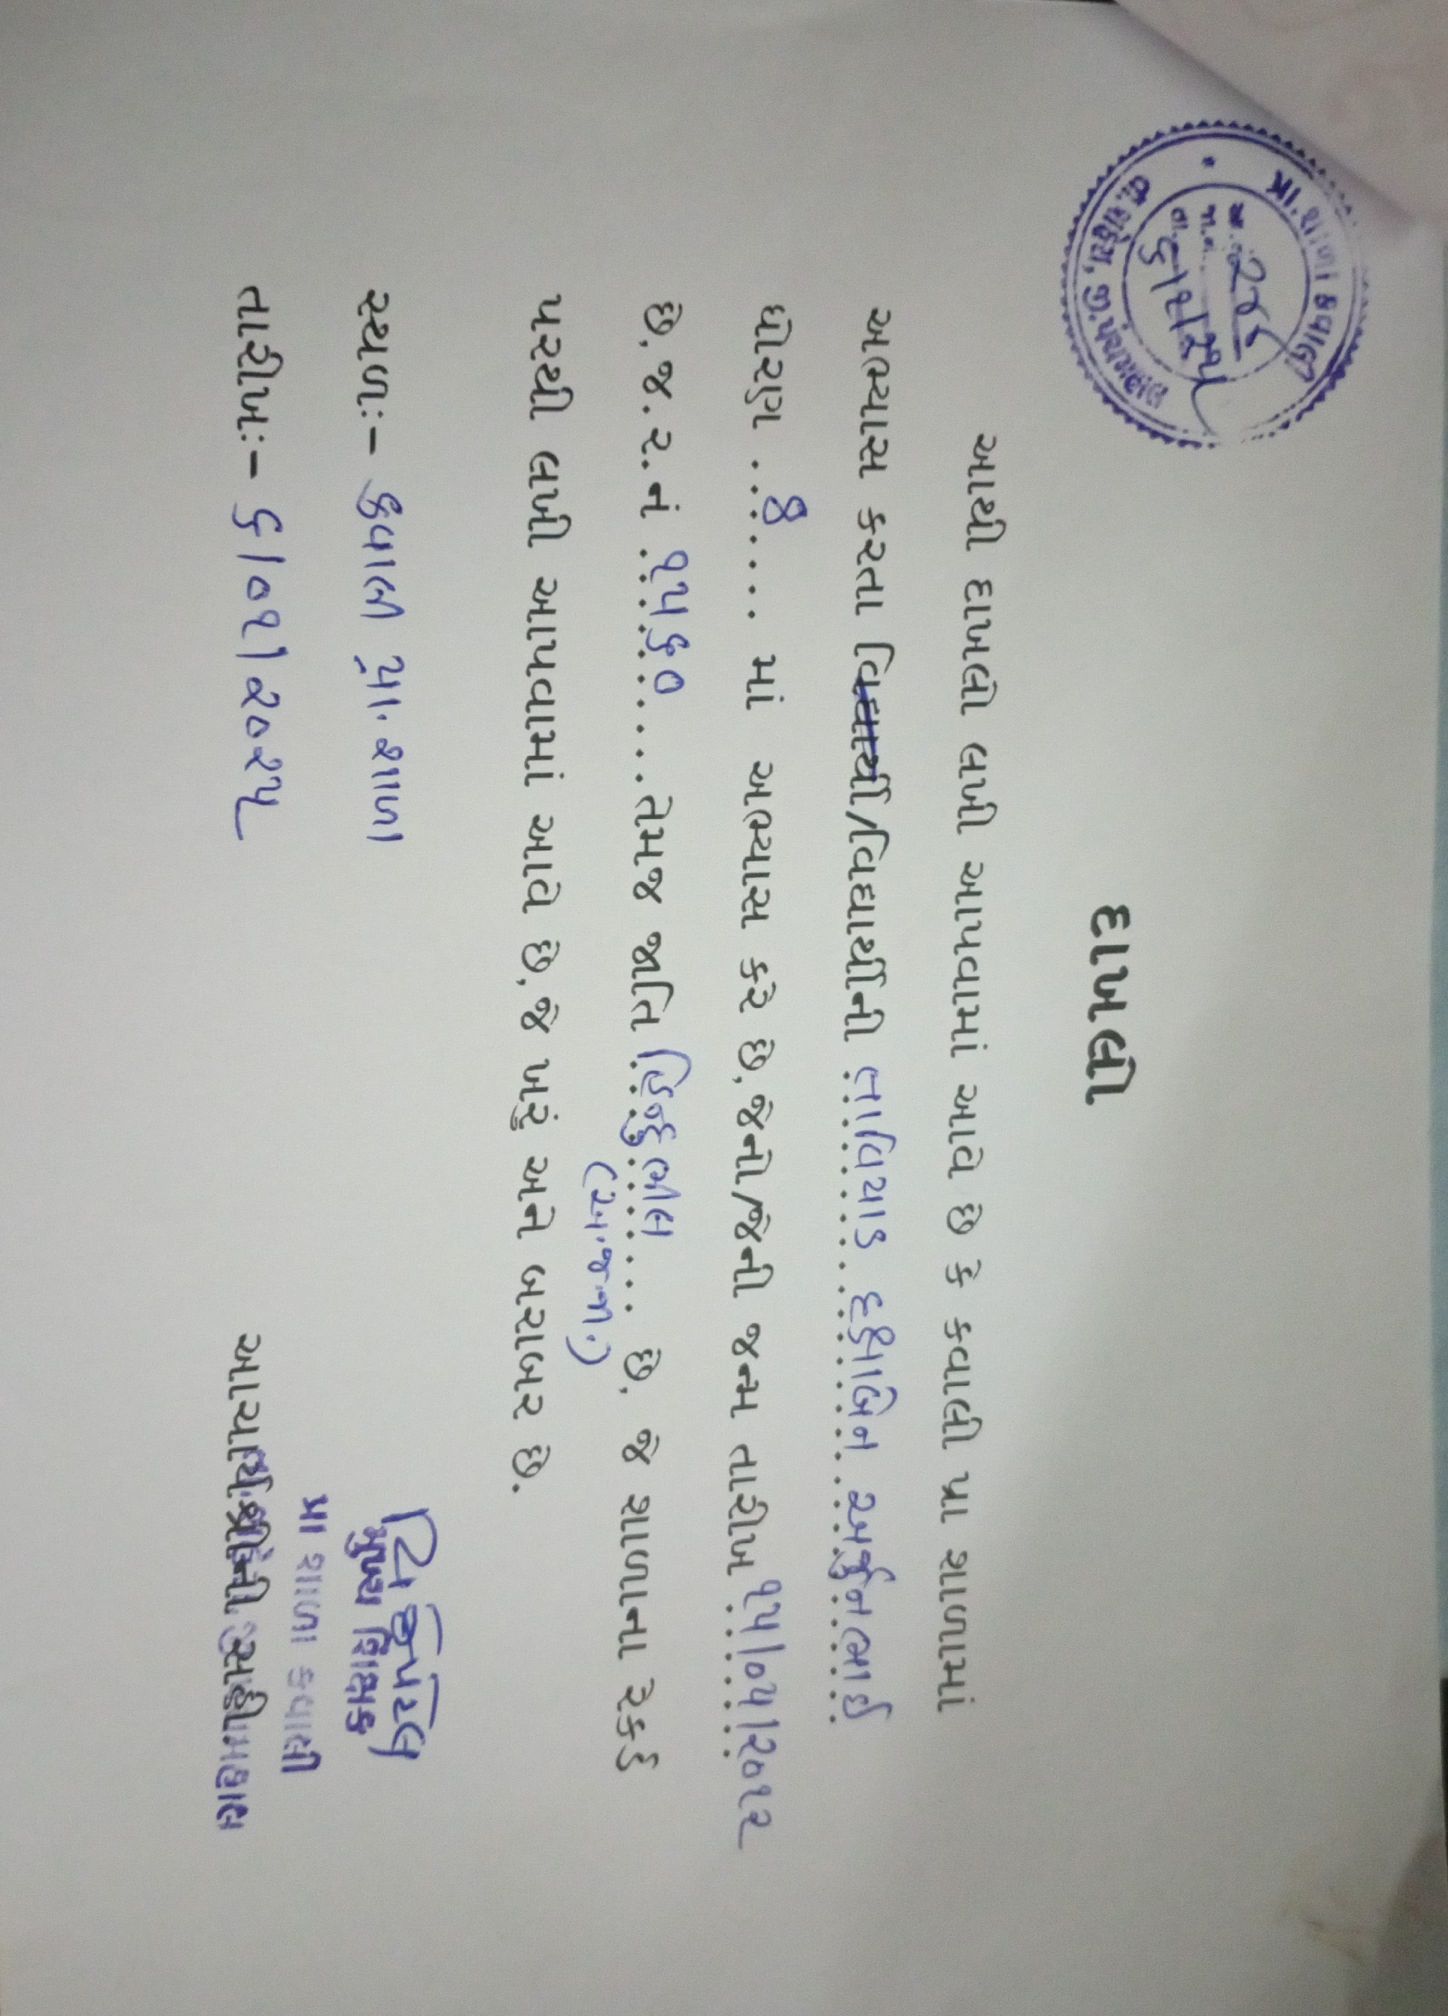 પ્રાથમિક શાળા કવાલી
તા.શહેરા, જી.પંચમહાલ
દાખલો
આથી દાખલો લખી આપવામાં આવે છે કે કવાલી પ્રા શાળામાં
અભ્યાસ કરતા વિદ્યાર્થી/વિદ્યાર્થીની ..... દક્ષાબેન અર્જુનભાઈ
ધોરણ ...૭..... માં અભ્યાસ કરે છે.જેનો/જેની જન્મ તારીખ ૧૫/૦૫/૨૦૧૨
છે.જ.ર.નં ૧૫૬૦ .....તેમજ જાતિ હિન્દુ ભીલ ..... છે. જે શાળાના રેકર્ડ
(અ.જ.જા.)
પરથી લખી આપવામાં આવે છે.જે ખરૂં અને બરાબર છે.
સ્થળઃ- કવાલી પ્રા. શાળા
તારીખઃ- ૬/૦૧/૨૦૨૫
મુખ્ય શિક્ષક
પ્રા શાળા કવાલી
આચાર્યશ્રીની સહી